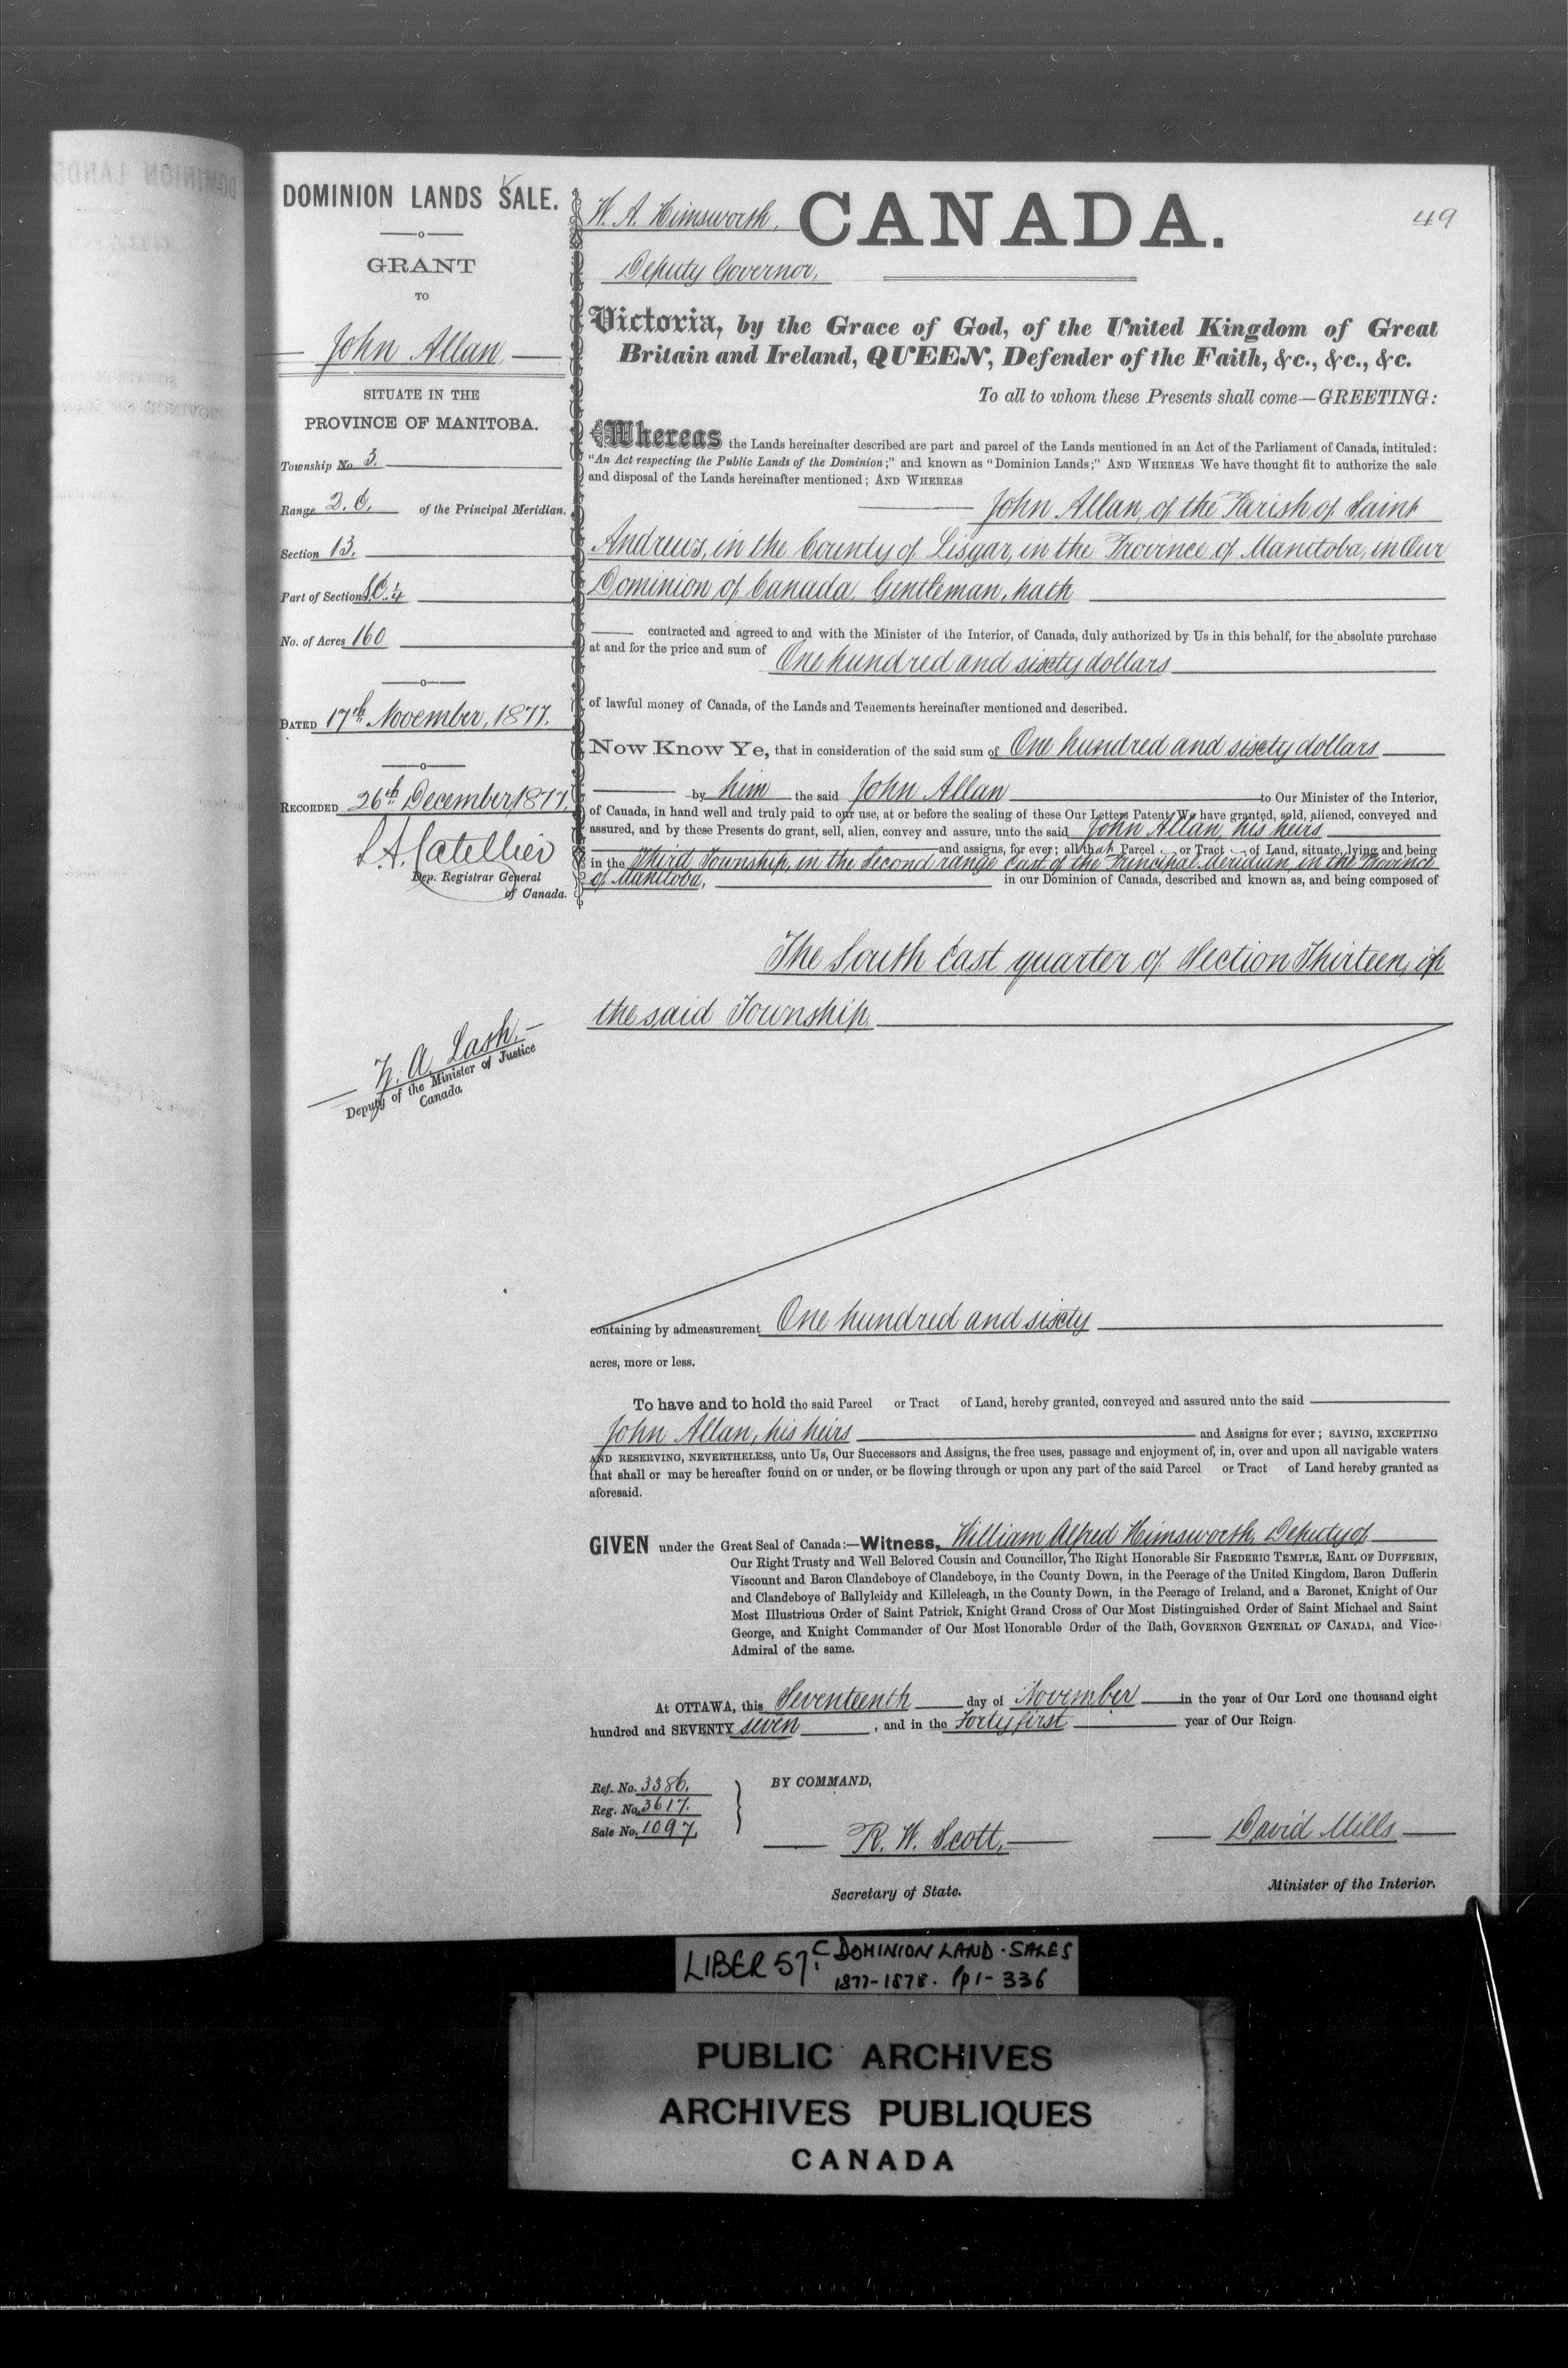 DOMINION LANDS SALE.
GRANT
TO
John Allan
SITUATE IN THE
PROVINCE OF MANITOBA.
Township No. 3.
Range 2. E. of the Principal Meridian.
Section 13.
Part of Section S.E. ¼
No. of Acres 160
DATED 17th November, 1877.
RECORDED 26th December, 1877.
L. A. Catellier
Dep. Registrar General
of Canada.
Z. A. Lash.
Deputy of the Minister of Justice
Canada
W. A. Himsworth,
Deputy Governor.
CANADA.
49
Victoria, by the Grace of God, of the United Kingdom of Great
Britain and Ireland, QUEEN, Defender of the Faith, &c., &c., &c.
To all to whom these Presents shall come—GREETING:
Whereas the Lands hereinafter described are part and parcel of the Lands mentioned in an Act of the Parliament of Canada, intituled:
"An Act respecting the Public Lands of the Dominion;" and known as "Dominion Lands;" AND WHEREAS We have thought fit to authorize the sale
and disposal of the Lands hereinafter mentioned; AND WHEREAS
John Allan, of the Parish of Saint
Andrews, in the County of Lisgar, in the Province of Manitoba, in Our
Dominion of Canada, Gentleman, hath
contracted and agreed to and with the Minister of the Interior, of Canada, duly authorized by Us in this behalf, for the absolute purchase
at and for the price and sum of One hundred and sixty dollars
of lawful money of Canada, of the Lands and Tenements hereinafter mentioned and described.
Now Know Ye, that in consideration of the said sum of One hundred and sixty dollars
by him the said John Allan to Our Minister of the Interior,
of Canada, in hand well and truly paid to our use, at or before the sealing of these Our Letters Patent, We have granted, sold, aliened, conveyed and
assured, and by these Presents do grant, sell, alien, convey and assure, unto the said John Allan, his heirs
and assigns, for ever; all that Parcel or Tract of Land, situate, lying and being
in the Third Township, in the Second range East of the Principal Meridian, in the Province
of Manitoba, in our Dominion of Canada, described and known as, and being composed of
The South East quarter of Section Thirteen, of
the said Township.
containing by admeasurement One hundred and sixty
acres, more or less.
To have and to hold the said Parcel or Tract of Land, hereby granted, conveyed and assured unto the said
John Allan, his heirs and Assigns for ever; SAVING, EXCEPTING
AND RESERVING, NEVERTHELESS, unto Us, Our Successors and Assigns, the free uses, passage and enjoyment of, in, over and upon all navigable waters
that shall or may be hereafter found on or under, or be flowing through or upon any part of the said Parcel or Tract of Land hereby granted as
aforesaid.
GIVEN under the Great Seal of Canada:—Witness, William Alfred Himsworth, Deputy of
Our Right Trusty and Well Beloved Cousin and Councillor, The Right Honorable Sir FREDERIC TEMPLE, EARL OF DUFFERIN,
Viscount and Baron Clandeboye of Clandeboye, in the County Down, in the Peerage of the United Kingdom, Baron Dufferin
and Clandeboye of Ballyleidy and Killeleagh, in the County Down, in the Peerage of Ireland, and a Baronet, Knight of Our
Most Illustrious Order of Saint Patrick, Knight Grand Cross of Our Most Distinguished Order of Saint Michael and Saint
George, and Knight Commander of Our Most Honorable Order of the Bath, GOVERNOR GENERAL OF CANADA, and Vice-
Admiral of the same.
At OTTAWA, this Seventeenth day of November in the year of Our Lord one thousand eight
hundred and SEVENTY seven, and in the Forty first year of Our Reign.
Ref. No. 3386.
Reg. No. 3617.
Sale No. 1097.
BY COMMAND,
R. W. Scott,
Secretary of State.
David Mills
Minister of the Interior.
LIBER 57C DOMINION LAND SALES
1877-1878. pp 1-336
PUBLIC ARCHIVES
ARCHIVES PUBLIQUES
CANADA